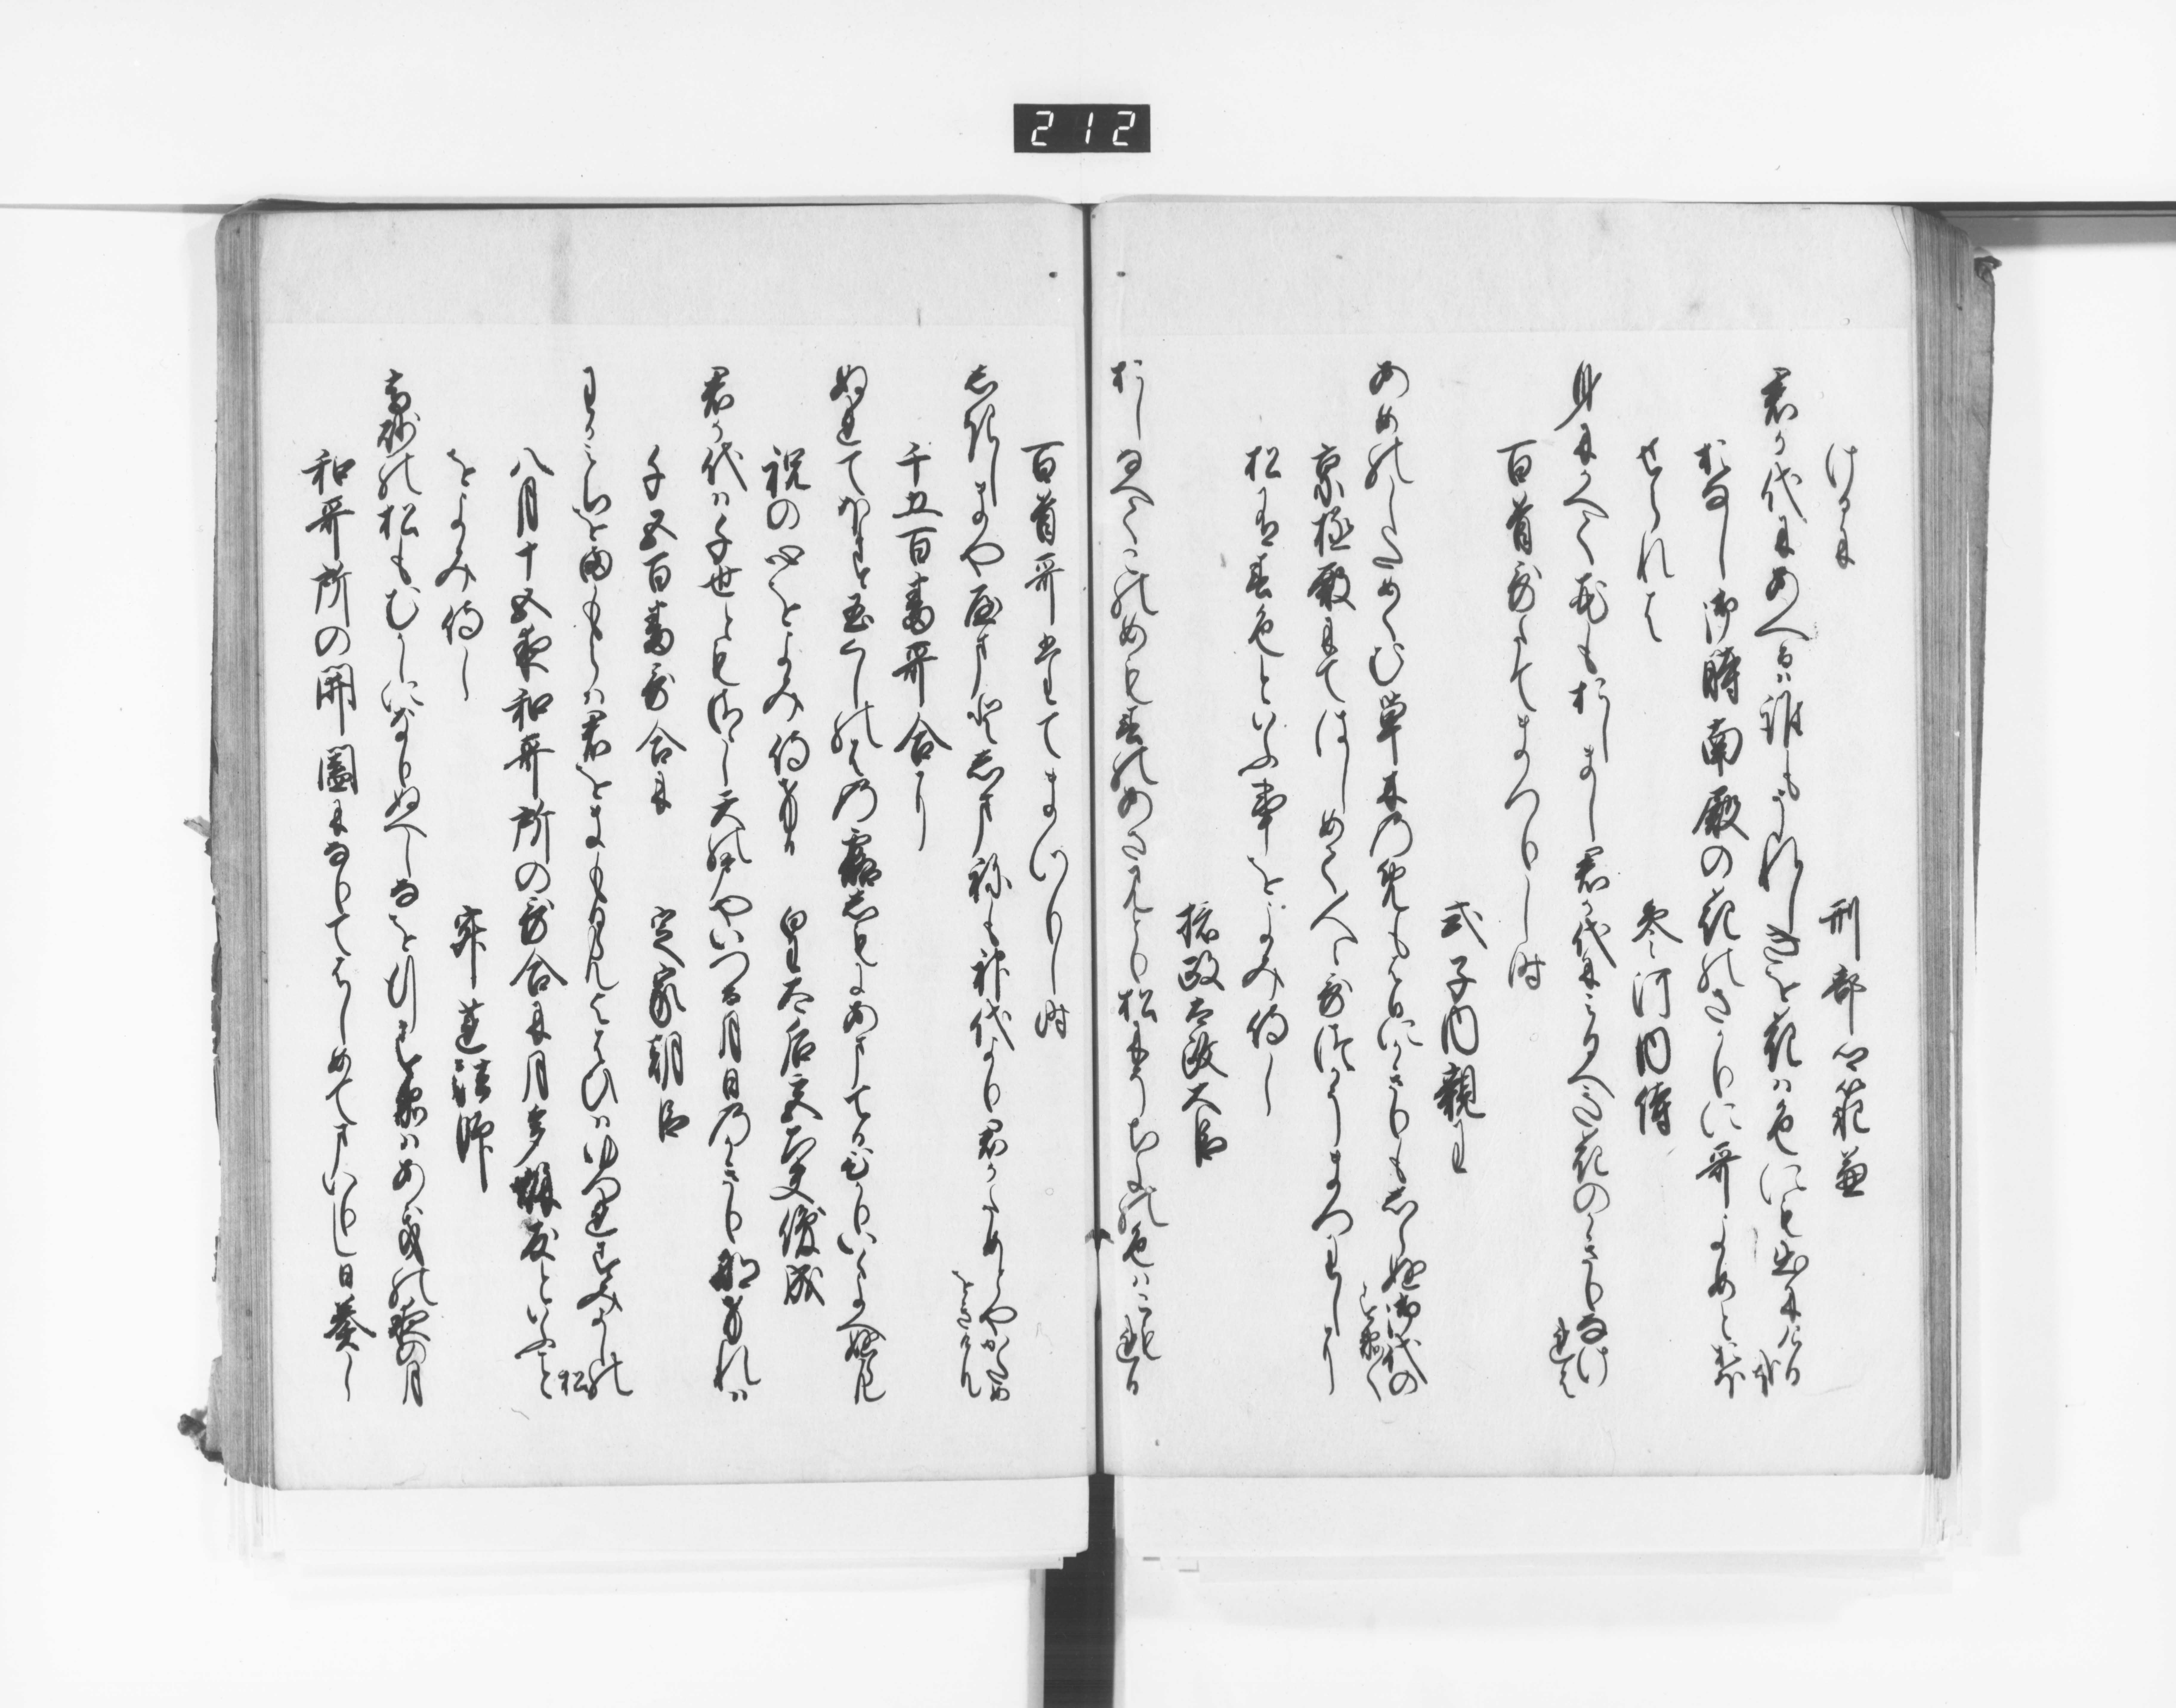 212
けるに
刑部卿範兼
君か代にあへるは誰もうれしきを花は色にも出にける哉
おなし御時南殿の花のさかりに哥よめとおほ
せられは
参河内侍
身にかへて花もおしまし君か代にみるへき春のかきりなけれは
百首哥たてまつりし時
式子内親王
あめのしためくむ草木のめもはるにかきりもしらぬ御代のすゑ〱
京極殿にてはしめて人〱哥つかうまつりしに
松有春色といふ事をよみ侍し
摂政太政大臣
おしなへてこのめも春のあさみとり松にそちよの色はこもれる
百首哥たてまつりし時
しきしまややまとしまねも神代より君かためとやかためをきけん
千五百番哥合に
ぬれてほす玉くしのはの露しもにあまてるひかりいくよへぬらん
祝の心をよみ侍ける
皇太后宮大夫俊成
君か代は千世ともさゝし天の戸やいつる月日のかきりなけれは
千五百番哥合に
定家朝臣
わかみちをまもらは君をまもるらんよはひはゆつれすみよしの松
八月十五夜和哥所の哥合に月多秋友といふこと
をよみ侍し
寂蓮法師
高砂の松もむかしになりぬへしなを行すゑは秋の夜の月
和哥所の開闔になりてはしめてまいりし日奏し